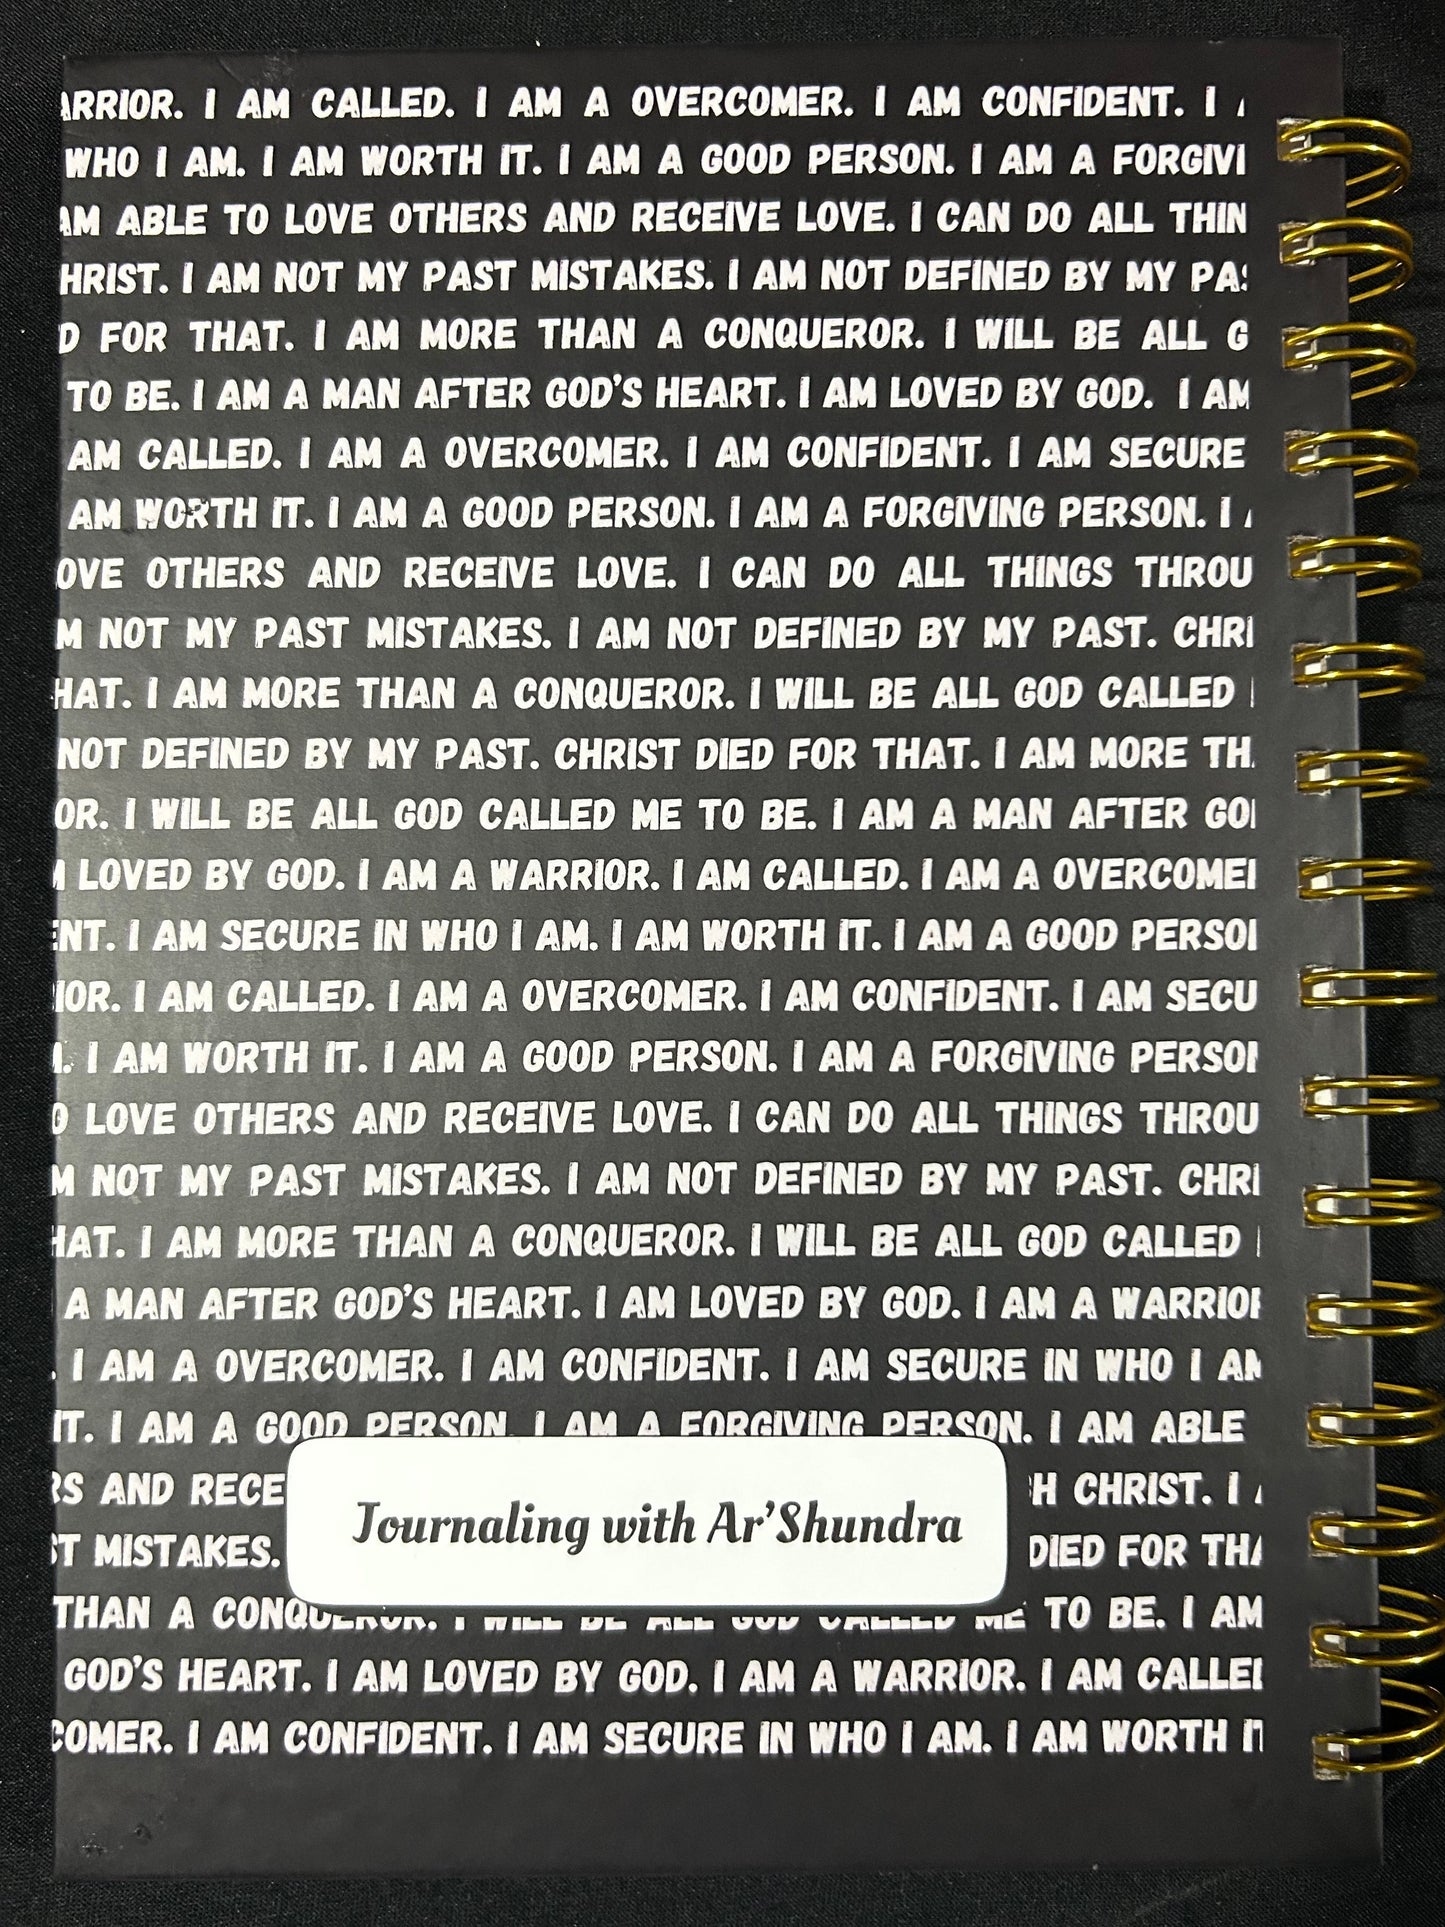 ARRIOR. I AM CALLED. I AM A OVERCOMER. I AM CONFIDENT. I
WHO I AM. I AM WORTH IT. I AM A GOOD PERSON. I AM A FORGIVI
AM ABLE TO LOVE OTHERS AND RECEIVE LOVE. I CAN DO ALL THIN
HRIST. I AM NOT MY PAST MISTAKES. I AM NOT DEFINED BY MY PAS
D FOR THAT. I AM MORE THAN A CONQUEROR. I WILL BE ALL G
TO BE. I AM A MAN AFTER GOD'S HEART. I AM LOVED BY GOD. I AM
AM CALLED. I AM A OVERCOMER. I AM CONFIDENT. I AM SECURE
AM WORTH IT. I AM A GOOD PERSON. I AM A FORGIVING PERSON. I
OVE OTHERS AND RECEIVE LOVE. I CAN DO ALL THINGS THROU
M NOT MY PAST MISTAKES. I AM NOT DEFINED BY MY PAST. CHRI
HAT. I AM MORE THAN A CONQUEROR. I WILL BE ALL GOD CALLED
NOT DEFINED BY MY PAST. CHRIST DIED FOR THAT. I AM MORE TH
OR. I WILL BE ALL GOD CALLED ME TO BE. I AM A MAN AFTER GO
LOVED BY GOD. I AM A WARRIOR. I AM CALLED. I AM A OVERCOME
ENT. I AM SECURE IN WHO I AM. I AM WORTH IT. I AM A GOOD PERSO
IOR. I AM CALLED. I AM A OVERCOMER. I AM CONFIDENT. I AM SECU
. I AM WORTH IT. I AM A GOOD PERSON. I AM A FORGIVING PERSO
O LOVE OTHERS AND RECEIVE LOVE. I CAN DO ALL THINGS THROU
M NOT MY PAST MISTAKES. I AM NOT DEFINED BY MY PAST. CHRI
HAT. I AM MORE THAN A CONQUEROR. I WILL BE ALL GOD CALLED
A MAN AFTER GOD'S HEART. I AM LOVED BY GOD. I AM A WARRIO
. I AM A OVERCOMER. I AM CONFIDENT. I AM SECURE IN WHO I AM
IT. I AM A GOOD PERSON. I AM A FORGIVING PERSON. I AM ABLE
RS AND RECE H CHRIST. I
Journaling with Ar'Shundra
ST MISTAKES. DIED FOR THA
THAN A CONQUEROR. I WILL BE ALL GOD CALLED ME TO BE. I AM
GOD'S HEART. I AM LOVED BY GOD. I AM A WARRIOR. I AM CALLE
COMER. I AM CONFIDENT. I AM SECURE IN WHO I AM. I AM WORTH IT